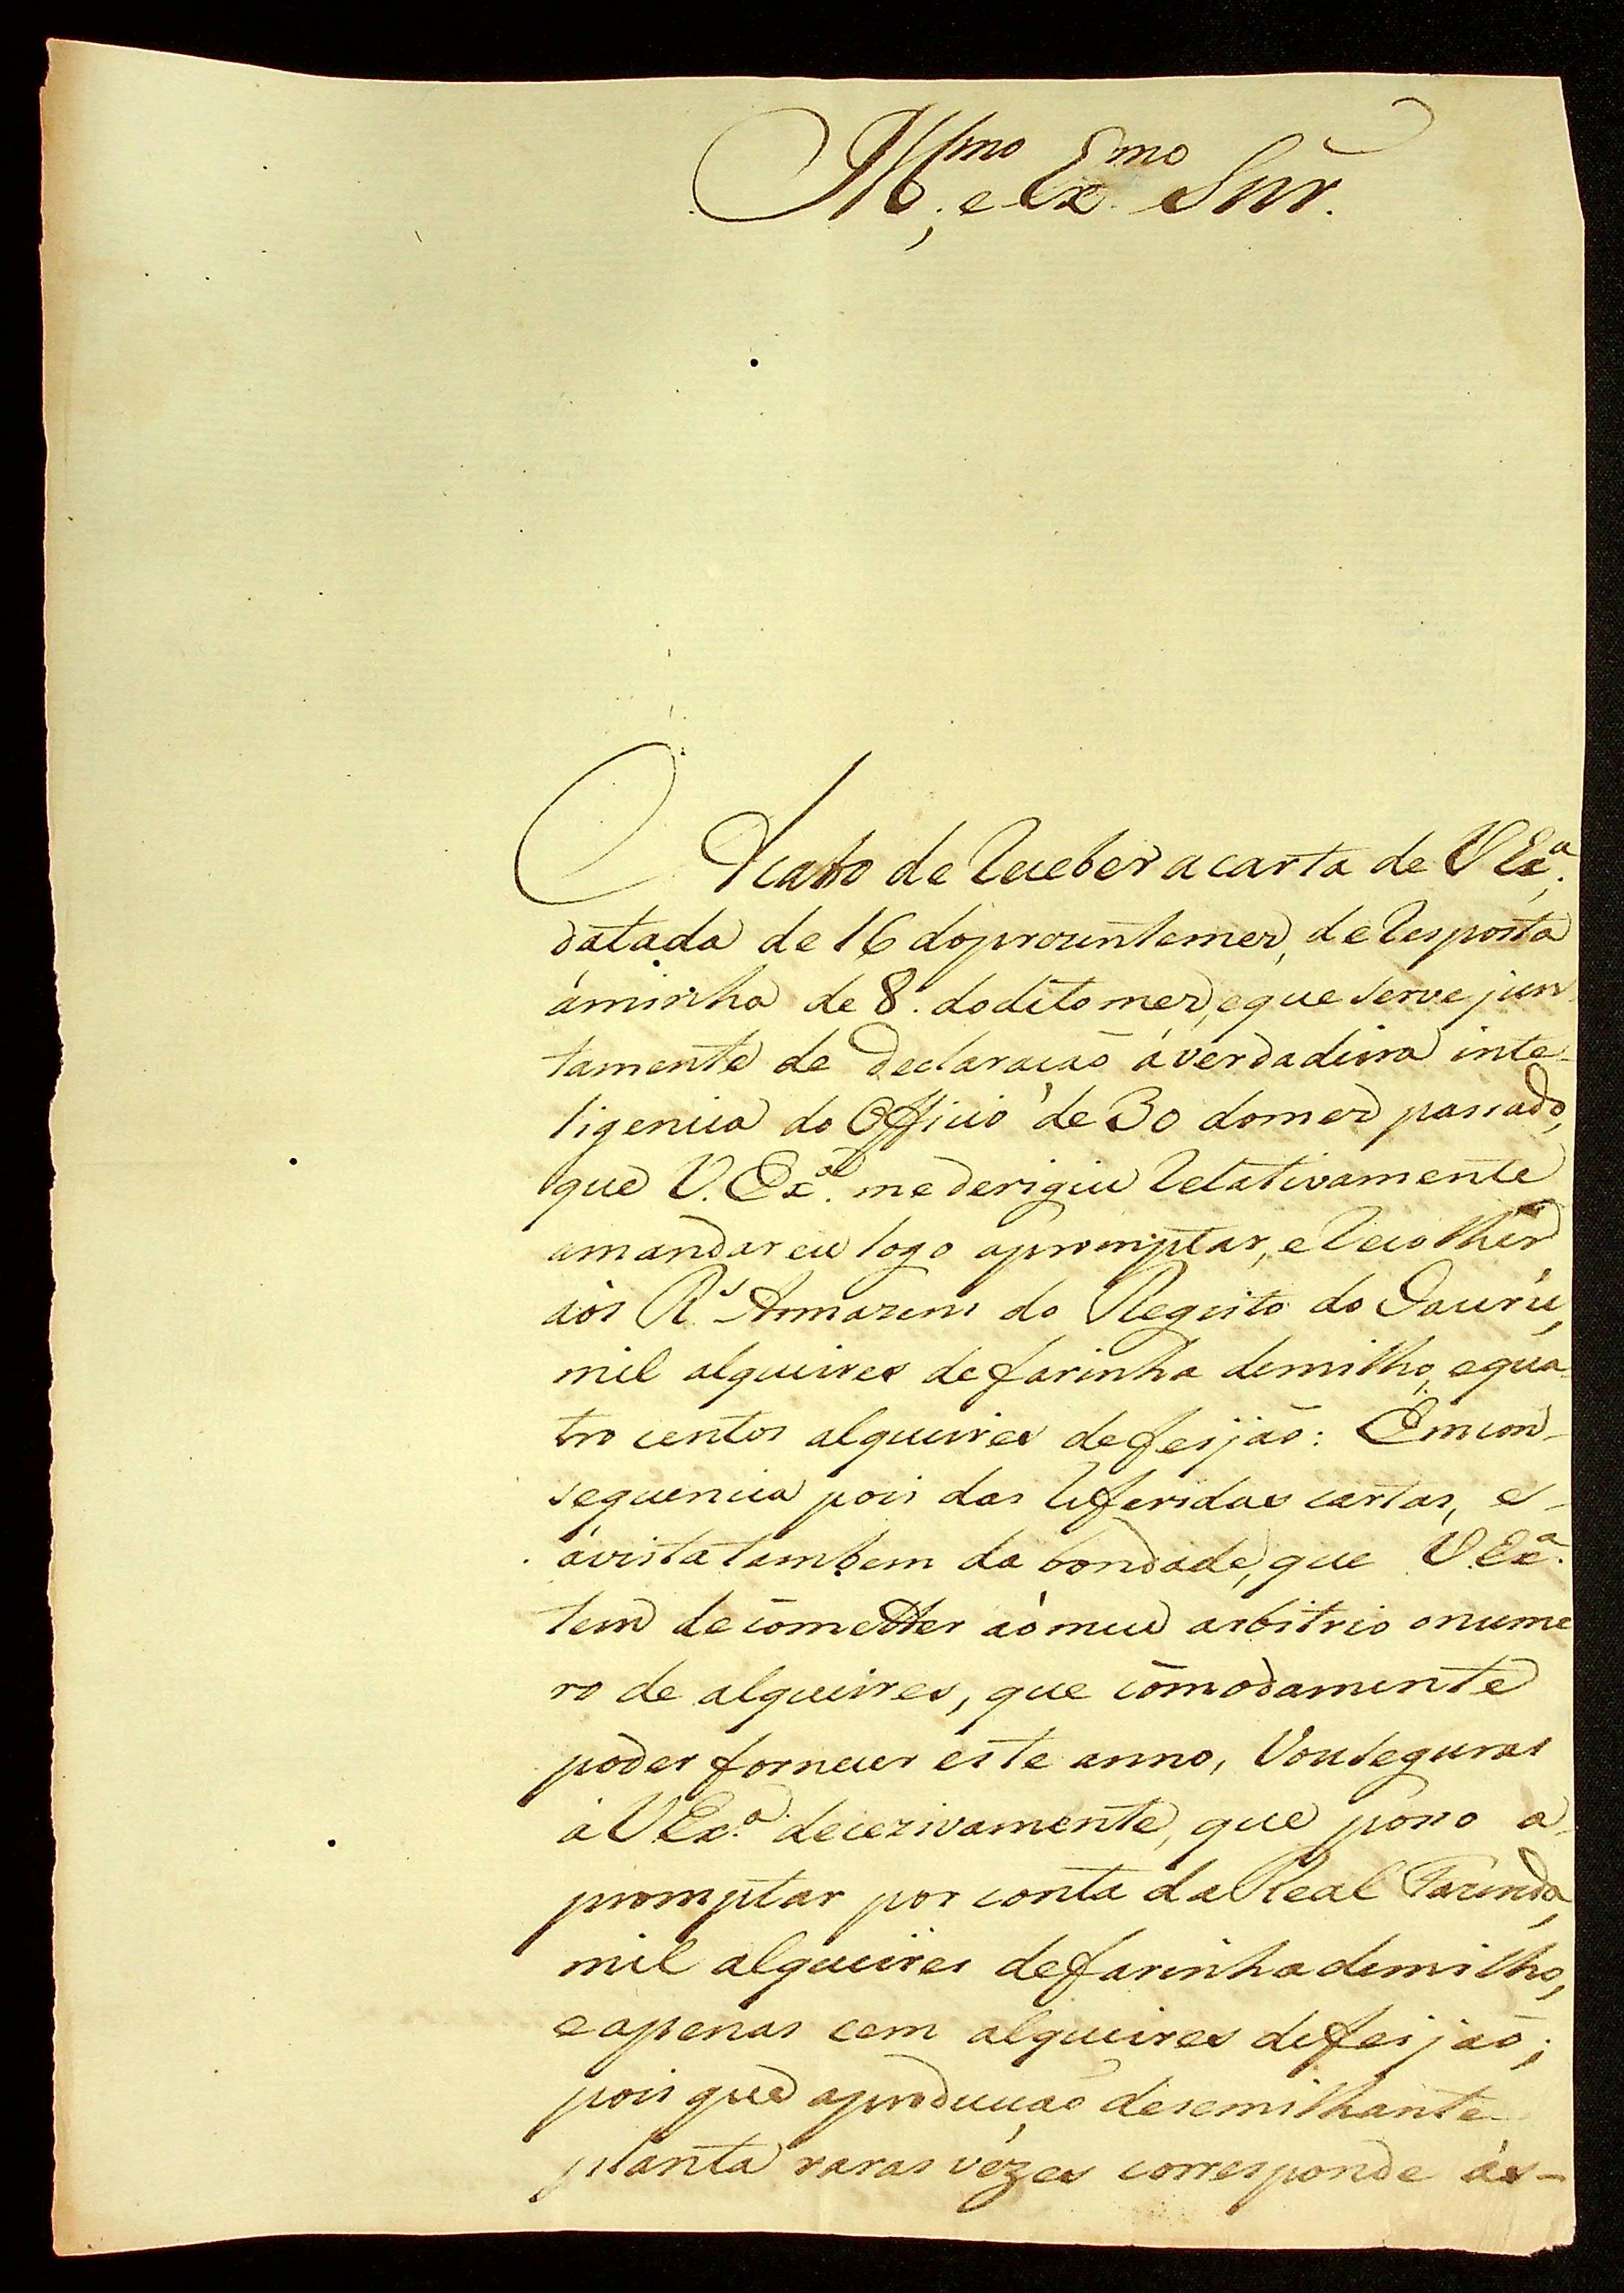 Ill.mo, e Ex.mo Snr.
Acabo de receber a carta de V Ex.a,
datada de 16 do prezente mez, de resposta
á minha de 8. do dito mez, e que serve jun
tamente de declaração á verdadeira inte-
ligencia do Officio de 30 do mez passado,
que V. Ex.a me derigiu relativamente
a mandar eu logo apromptar, e recolher
aòs R.s Armazens do Registo do Jaurú,
mil alqueires de farinha de milho, e qua
tro centos alqueires de feijaõ: Em con-
sequencia pois das referidas cartas, e-
á vista tambem da bondade, que V. Ex.a
tem de cõmetter aò meu arbitrio o nume
ro de alqueires, que cõmodamente
póder fornecer este anno, Vou segurar
á V Ex.a decezivamente, que posso a-
promptar por conta da Real Fazenda,
mil alqueires de farinha de milho,
e apenas cem alqueires de feijaõ;
pois que a producçaõ de semilhante
planta raras vêzes corresponde ás-